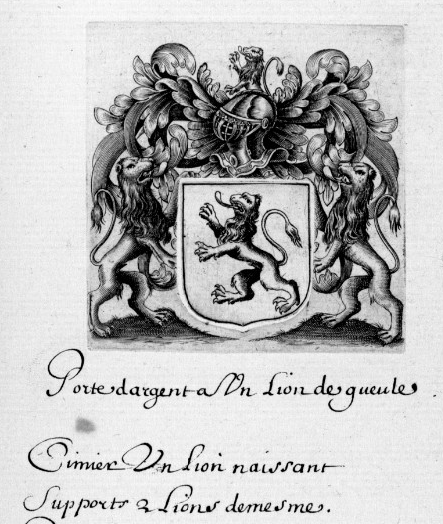 Porte dargent a Vn Lion de gueule.
Cimier Vn Lion naissant
Supports 2 Lions demesme.